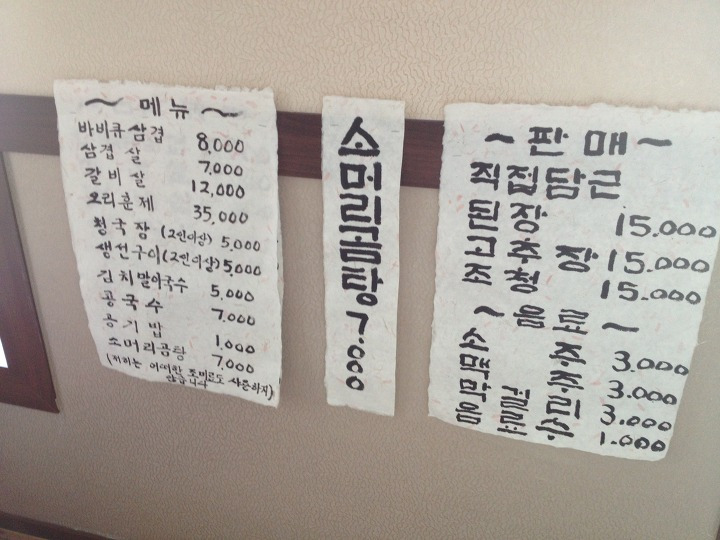 ~ 메뉴 ~
바비큐삼겹 8,000
삼겹살 7,000
갈비살 12,000
오리훈제 35,000
청국장 (2인이상) 5,000
생선구이 (2인이상) 5,000
김치말이국수 5,000
콩국수 7,000
공기밥 1,000
소머리곰탕 7,000
(저희는 어떠한 조미료도 사용하지
않습니다
소머리곰탕 7.000
~ 판매 ~
직접담근
된장 15.000
고추장 15.000
조청 15.000
~ 음료 ~
소주 3.000
맥주 3.000
막걸리 3.000
음료수 1.000